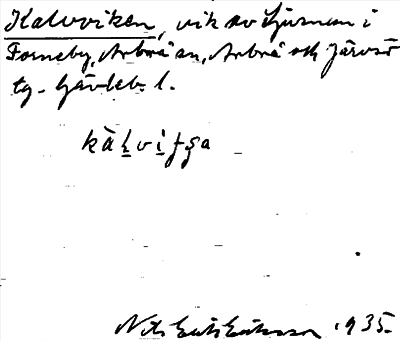 Kalvviken, vik av Ljusnan i
Forneby, Arbrå sn, Arbrå och Järvsö
tg. Gävleb. l.
kàlvifsa
Nils Erik Eriksson 1935.